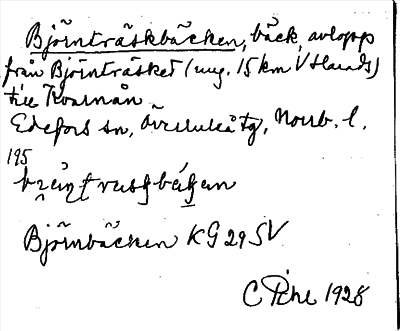 Björnträskbäcken, bäck, avlopp
från Björnträsket (ung. 15 km V Harads)
till Kvarnån
Edefors sn, Överluleå tg, Norrb. l.
195
Björnbäcken KG 29 SV
C Pihl 1928